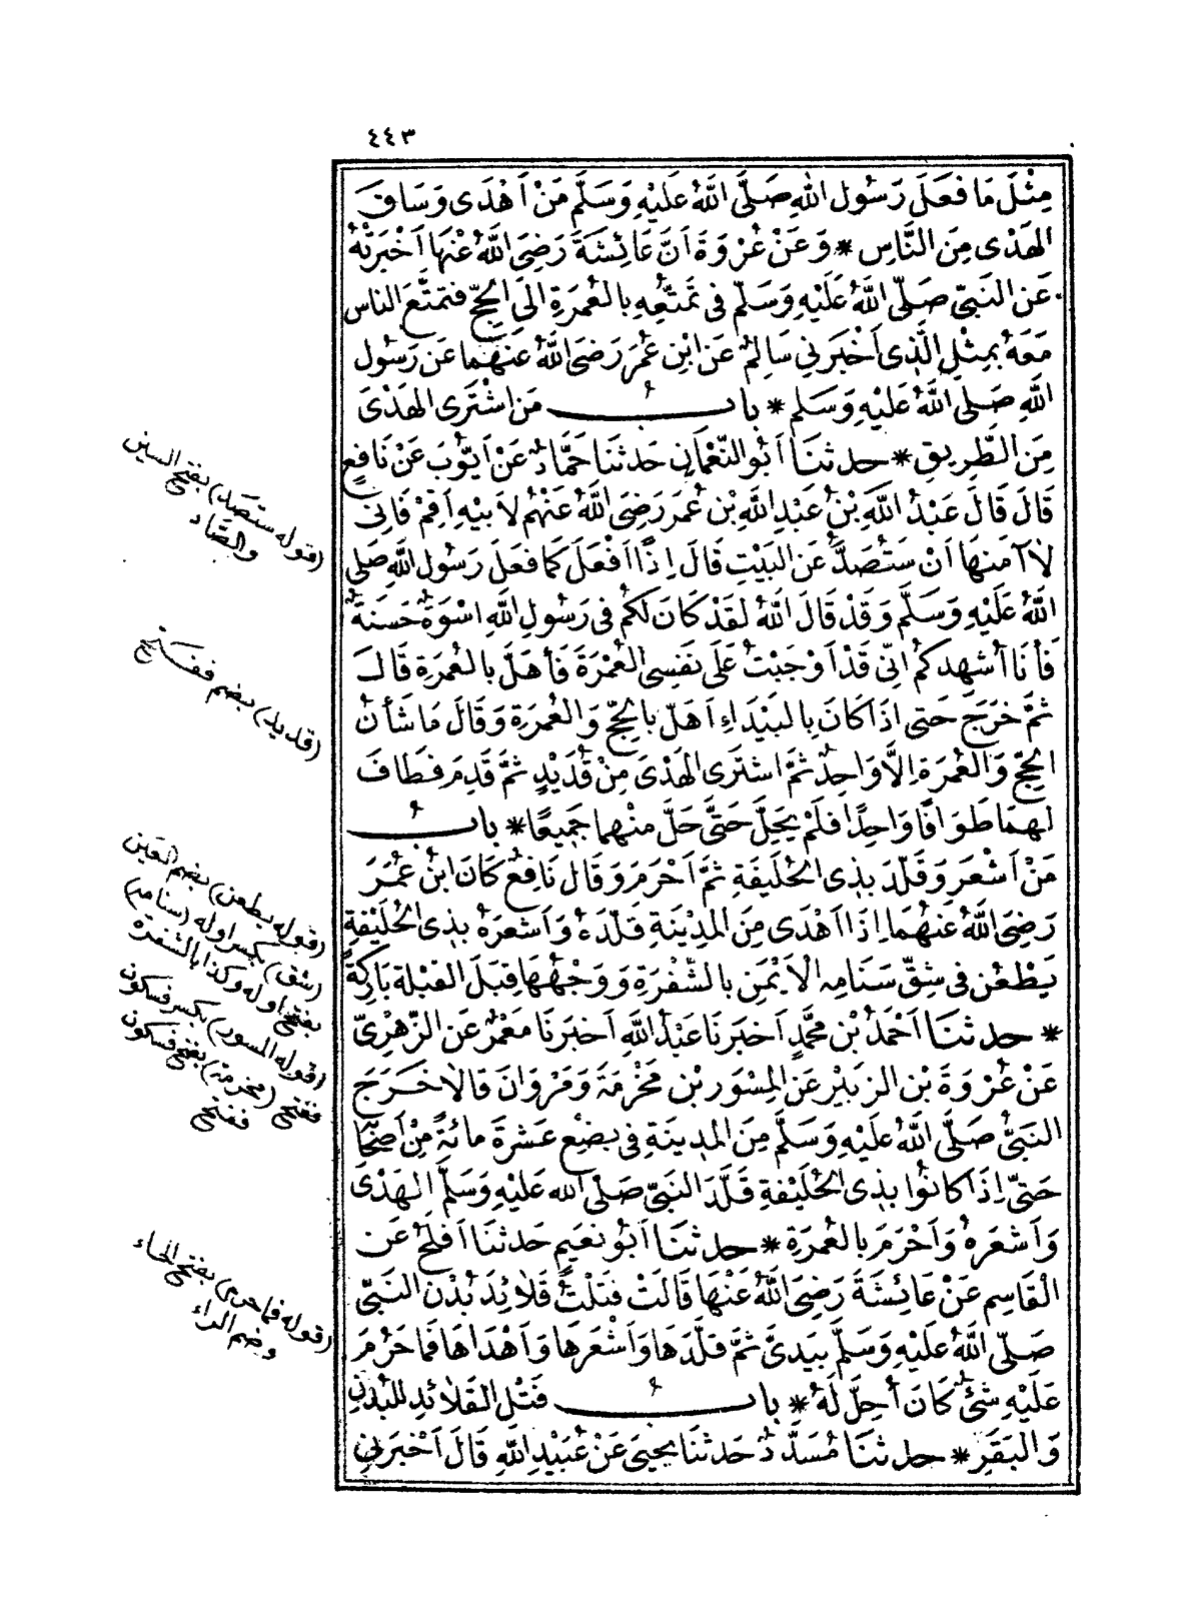 ٤٤٣
مِثْلَ مَا فَعَلَ رَسُول اللهِ صَلَّى اللَّهُ عَلَيْهِ وَسَلَّم مَنْ اَهْدَى وَسَاقَ
الهَدْىَ مِنَ النَّاسِ * وَعَنْ عُرْوَةَ اَنَّ عَائِشَةَ رَضِيَ اللَّهُ عَنْهَا اَخْبَرَتْهُ
عَنِ النَّبِيّ صَلَّى اللَّهُ عَلَيْهِ وَسَلَّم فى تَمَتُّعِهِ بالعُمرَةِ الىَ الحَجّ فتمتَّعَ الناس
مَعَهُ بمِثْلِ الَّذِى اَخْبَرَنِي سَالِمٌ عَنِ ابْنِ عُمَرَ رَضِىَ اللَّهُ عَنهُمَا عَن رَسُول
اللَّهِ صَلَّى اللَّهُ عَلَيْهِ وَسَلَم * بابُ مَن اشْتَرَى الهَدْىَ
مِنَ الطَّرِيقِ * حدثنَا اَبُو النُّعْمَانِ حَدثنَا حَمَّادٌ عَنْ اَيُّوبَ عَنْ نَافِعٍ
قَالَ قَالَ عَبْدُ اللَّهِ بْنُ عَبْدِ اللَّهِ بْنِ عُمَرَ رَضِىَ اللَّهُ عَنْهُم لاَبِيْهِ اَقِمْ فَاِنّى
لاَ آمَنهَا اَنْ سَتُصَدَّ عَنِ البَيْتِ قَالَ اِذًا اَفْعَلَ كمَا فَعَلَ رَسُول اللَّهِ صَلى
اللَّهُ عَلَيْهِ وَسَلَّم وَقَدْ قَالَ اللَّهُ لقَدْ كَانَ لَكُم فى رَسُولِ اللَّهِ اسْوَةٌ حَسَنَةٌ
فَأنَا اُشْهِدكُم انّى قَدْ اَوْجَبْتُ عَلَى نَفسِى العُمْرَةَ فَأهَلَّ بالعُمرَةِ قَالَ
ثمَّ خَرَجَ حَتى اذَا كَانَ بِالبَيْدَاءِ اَهَلّ بالحَجِّ وَالعُمرَةِ وَقَالَ مَا شَأنُ
الحَجّ وَالعُمرَةِ اِلاَّ وَاحِدٌ ثمَّ اشتَرَى الهَدْىَ مِنْ قُدَيْدٍ ثمَّ قَدِمَ فطَافَ
لهمَا طَوَافًا وَاحِدًا فلَمْ يَحِلَّ حَتىَّ حَلَّ منْهمَا جَمِيعًا * بابُ
مَنْ اَشعَرَ وَقَلّدَ بذِى الحُلَيفَةِ ثمَّ اَحْرَمَ وَقَال نَافِعٌ كَانَ ابنُ عُمَرَ
رَضِىَ اللَّهُ عَنهُمَا اِذَا اَهْدَى مِنَ المَدِيْنَةِ قَلّدَهُ وَاَشعَرَهُ بذِى الحُلَيْفَةِ
يَطْعُن فى شِقّ سَنَامِهِ الاَيْمَنِ بالشّفْرَةِ وَوَجْهُهَا قِبَلَ القبْلة بَارِكَةً
* حدثنَا اَحْمَدُ بْن محَمَّدٍ اَخبَرنَا عَبْدُ اللَّهِ اَخبَرَنَا مَعْمَرٌ عَنِ الزّهْرِىّ
عَنْ عُرْوَةَ بْنِ الزبَيْرِ عَنِ المِسْوَرِ بْنِ مَخْرَمَةَ وَمَرْوَانَ قَالاَ خَرَجَ
النَبىُّ صَلَّى اللَّهُ عَلَيْهِ وَسَلَّم مِنَ المَدِينَةِ فى بضعَ عَشرَةَ مائةً مِنْ اَصْحَابِهِ
حَتىّ اِذَا كانُوا بذِى الحُلَيْفةِ قَلَّدَ النَبىّ صَلّى الله عَلَيْهِ وَسَلَّم الهَدْىَ
وَاَشعَرَهُ وَاَحْرَمَ بالعُمرَةِ * حدثنَا اَبُو نعَيمٍ حَدثنَا اَفلَحُ عَن
القَاسِمِ عَنْ عَائِشَةَ رَضِىَ اللَّهُ عَنْهَا قَالَتْ فتَلْتُ قَلاَئِدَ بُدْنِ النَّبىّ
صَلّى اللَّهُ عَلَيْهِ وَسَلَّم بيَدىَّ ثمَّ قلَّدَهَا وَاَشْعَرهَا وَاَهْدَاهَا فمَا حَرُمَ
عَلَيْهِ شَئٌ كَانَ اُحِلّ لَهُ * بابُ فَتْل القَلائِدِ للبُدْنِ
وَالبَقَرِ * حدثنَا مُسَدَّدٌ حَدثنَا يحيىَ عَنْ عُبَيْدِ اللَّهِ قَالَ اَخْبَرَنِى
(قوله ستصَد) بفتح السين
والصَّاد
(قديد) بضم ففتح
(قوله يطعن) بضم العَين
(شق) بكسر اوله (سنامه)
بفتح اوله وكذا بالشفرة
(قوله المسور) بكسر فسكون
ففتح (مخرمة) بفتح فسكون
ففتح
(قوله فما حرم) بفتح الحاء
وضم الراء